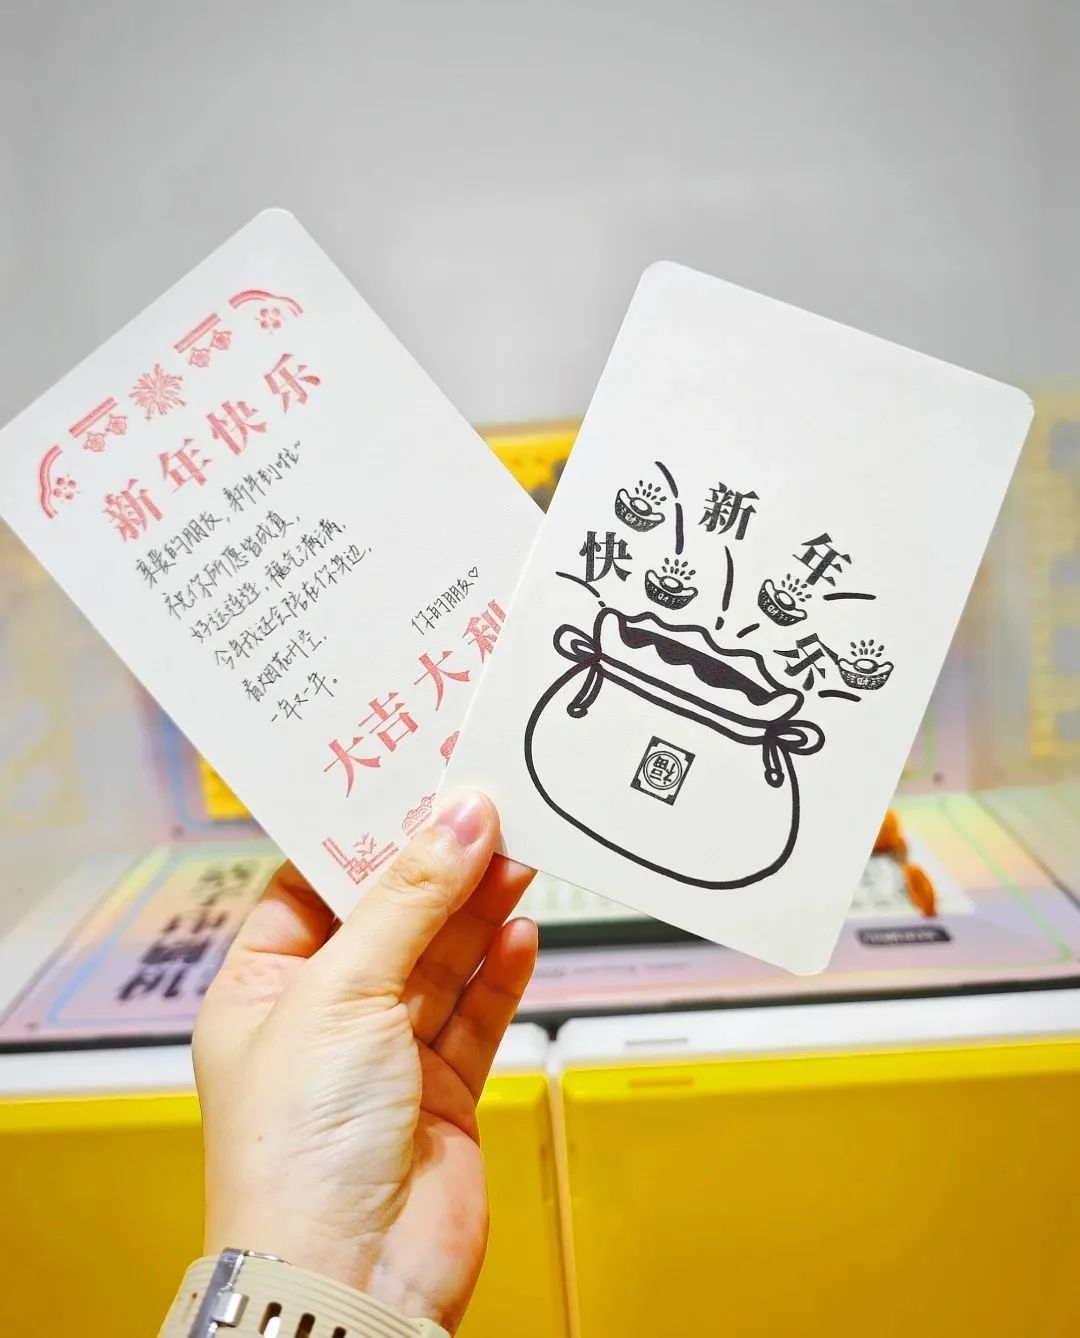 新年快乐
亲爱的朋友，新年到啦~
祝你所愿皆成真，
好运连连，福气满满，
今年我还会陪在你身边，
看烟花升空，
一年又一年。
你的朋友♡
大吉大利
新年快乐
福